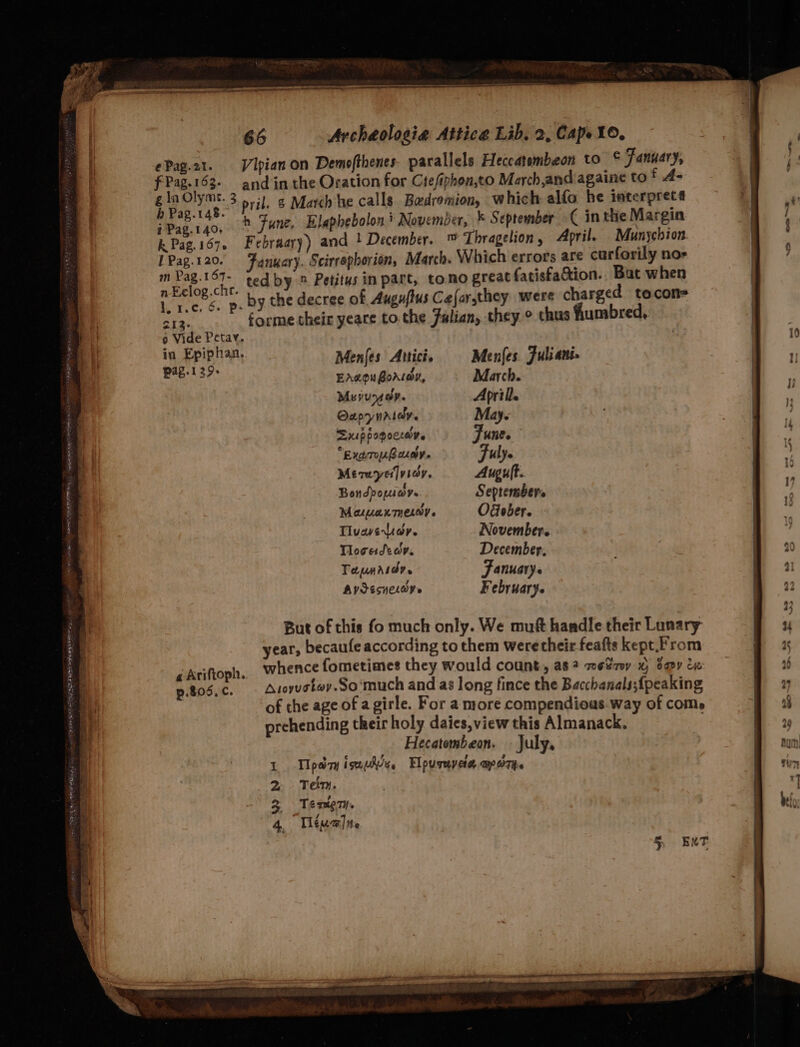 66 Archæologiæ Atticæ Lib. 2. Cap. 10.
e Pag. 21. Vlpian on Demosthenes parallels Heccatombæon to e January,
f Pag. 163. and in the Oration for Ctesiphon, to March, and againe to f A-
g In Olynt. 3 pril. g March he calls Bœdromion, which also he interprets
h Pag. 148. h June, Elaphebolon i November, k September ( in the Margin
i Pag. 140.
k Pag. 167. February) and l December. m Thragelion, April. Munychion
l Pag. 120. January. Scirrophorion, March. Which errors are cursorily no-
m Pag. 167. ted by n Petitus in part, to no great satisfaction. But when
n Eclog. chr. by the decree of Augustus Cæsar, they were charged to con-
l. 1. c. 6. p.
213. forme their yeare to the Julian, they o thus numbred.
o Vide Petav.
in Epiphan. Menses Attici. Menses Juliani.
pag. 139. Ελαφηβολιών, March.
Μουνυχιών. Aprill.
Θαργηλιών. May.
Σκιῤῥοφοριών. June.
Ἑκατομβαιών. July.
Μεταγειτνιών. August.
Βοηδρομιών. September.
Μαιμακτηριών. October.
Πυανεψιών. November.
Ποσειδεών. December.
Γαμηλιών. January.
Ανθεστηριών. February.
But of this so much only. We must handle their Lunary
year, because according to them were their feasts kept, From
a Aristoph. whence sometimes they would count, as a
p. 805. c. Διονυσίων. So much and as long since the Bacchanals; speaking
of the age of a girle. For a more compendious way of com-
prehending their holy daies, view this Almanack.
Hecatombæon. July.
1 Πρώτη ἱσταμένου.
2 Τρίτη.
3 Τετάρτη.
4 Πέμπτη.
5 ΕΚΤ